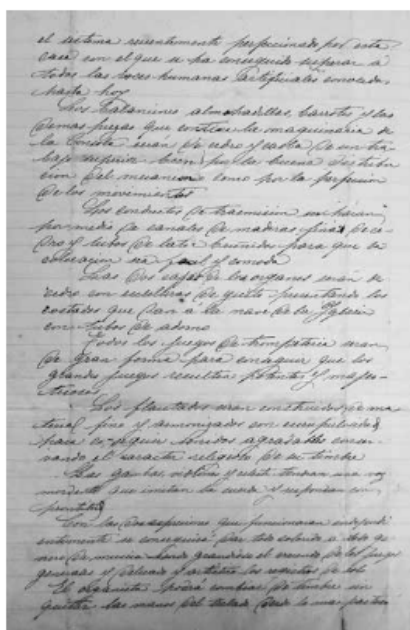 el sistema recientemente perfeccionado por esta
casa con el que se ha conseguido superar a
todas las voces humanas artificiales conocidas
hasta hoy
Los balancines almohadillas, barrotes y las
demas piezas que constan la maquinaria de
la Consola seran de cedro y caoba de un tra-
bajo superior bien por la buena distribu-
cion del mecanismo como por la perfeccion
de los movimientos
Los conductos de trasmision se haran
por medio de canales de maderas finas de ce-
dro y tubos de laton reunidos para que su
colocacion sea facil y comoda
Las dos cajas de los organos seran de
cedro con esculturas de gusto presentando los
costados que dan a la nave de la Yglesia
con tubos de adorno
Todos los juegos de trompeteria seran
de gran forma para conseguir que los
grandes juegos resulten potentes y majes-
tuosos
Los flautados seran construidos de ma-
terial fino y armonizados con escrupulosidad
para conseguir sonidos agradables conser-
vando el caracter religioso de su timbre
Las gambas, violines y celeste tendran una voz
mordente que imitan la cuerda y respondan con
prontitud
Con las dos espresiones que funcionaran independi-
entemente se conseguira dar todo colorido a todo ge-
nero de musica siendo grandioso el crescendo de los juegos
generales y delicado y artistico los registros de solo
El organista podra combinar de timbre sin
quitar las manos del teclado desde lo mas pastoso